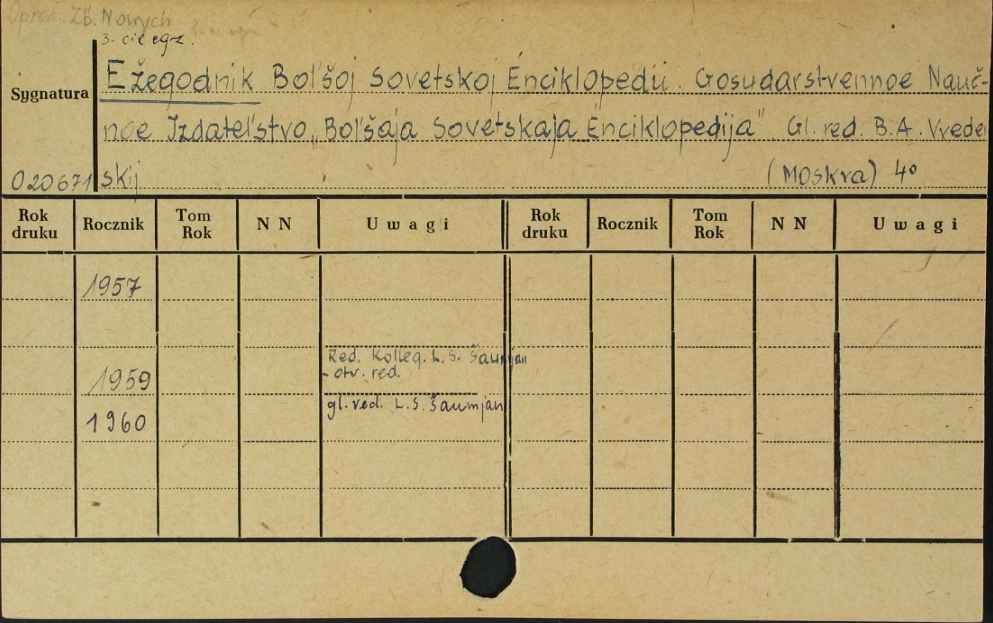 Oprac. Zb. Nowych
3. cie egz.
Sygnatura
Ežegodnik Bol'šoj Sovetskoj Ėnciklopedii. Gosudarstvennoe Nauč-
noe Izdatel'stvo „Bol'šaja Sovetskaja Enciklopedija" Gl. red. B.A. Vveden
020671 skij (Moskva) 4°
Rok druku Rocznik Tom Rok NN Uwagi Rok druku Rocznik Tom Rok NN Uwagi
1957
Red. Kolleg. L.S. Šaumjan
- otv. red.
1959
gl. red. L.S. Šaumjan
1960